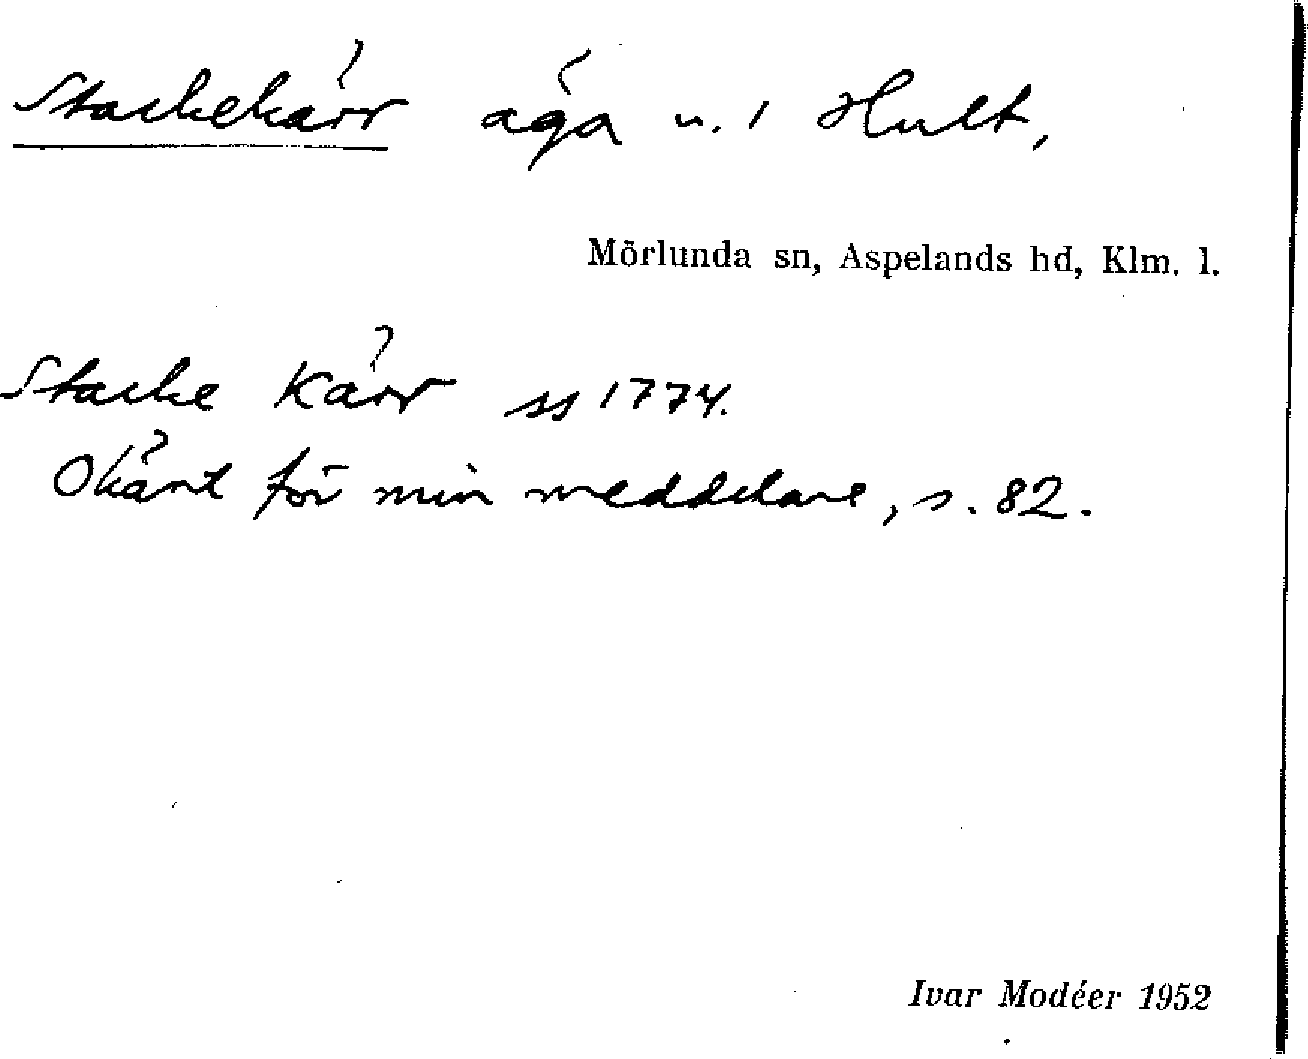 Stackekärr äga u. 1 Hult,
Mörlunda sn, Aspelands hd, Klm. l.
Stacke Kärr ss 1774.
Okänt för min meddelare, s. 82.
Ivar Modéer 1952